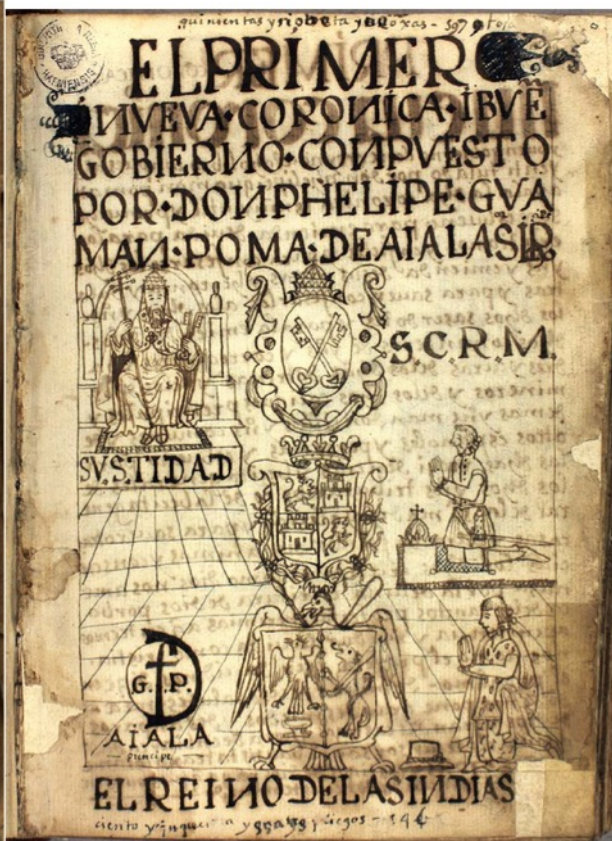 quinientas y - 597
EL PRIMER
NVEVA·CORONICA·I BVĒ
GOBIERNO·CONPVESTO
POR·DON PHELIPE·GVA
MAN·POMA·DE AIALA
S.C.R.M.
SV.S.TIDAD
G. P.
AIALA
principe
EL REINO DE LAS INDIAS
ciento y pliegos - 146